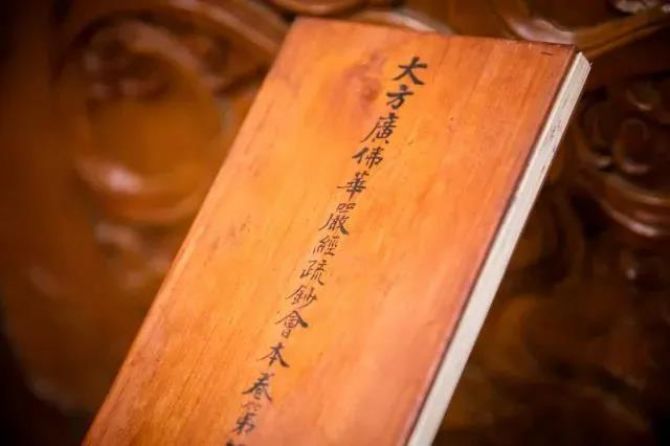 大方廣佛華嚴經疏鈔會本卷第